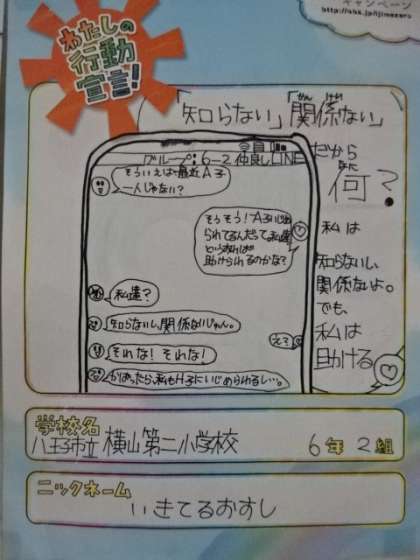 キャンペーン
わたしの
行動
宣言！
「知らない」「関係ない」
かん けい
だから
なに
何？
私は
知らないし、
関係ないよ。
でも、
私は
助ける
グループ：6－2 仲良しLINE
そういえば最近A子
一人じゃない？
そうそう！A子いじめ
られてるんだって。私達
助けられるのかな？
私達？
知らないし、関係ないじゃん。
え？
それな！それな！
かばったら、私もH子にいじめられるし…。
学校名
八王子市立 横山第二小学校
6年2組
ニックネーム
いきてるおすし